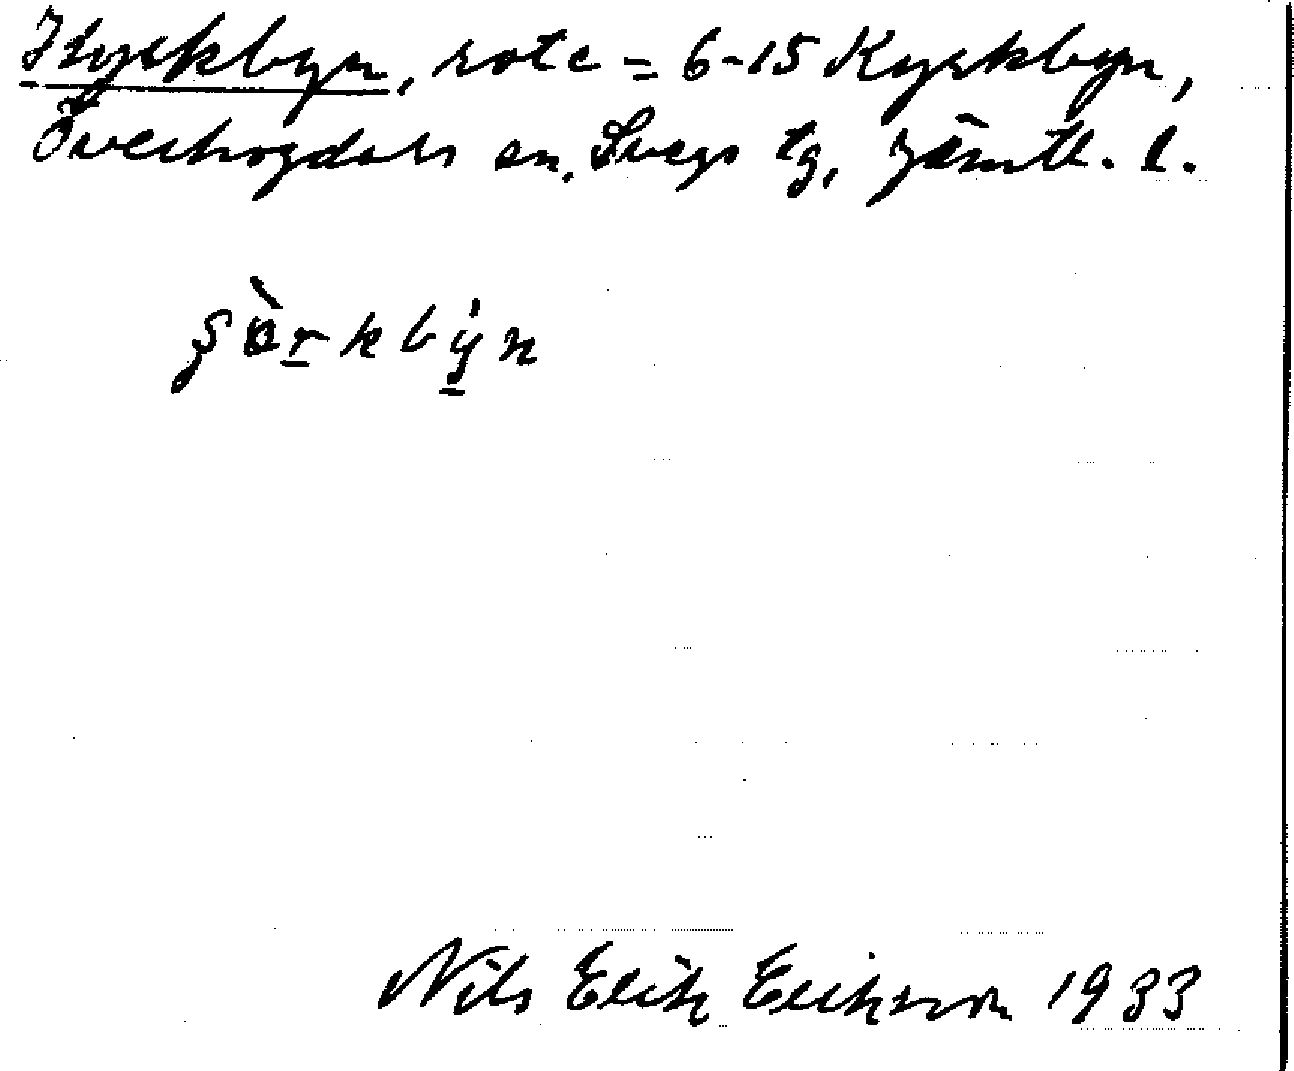 Kyrkbyn, rote = 6-15 Kyrkbyn,
Överhogdals sn, Svegs tg, Jämtl. l.
Nils Erik Eriksson 1933